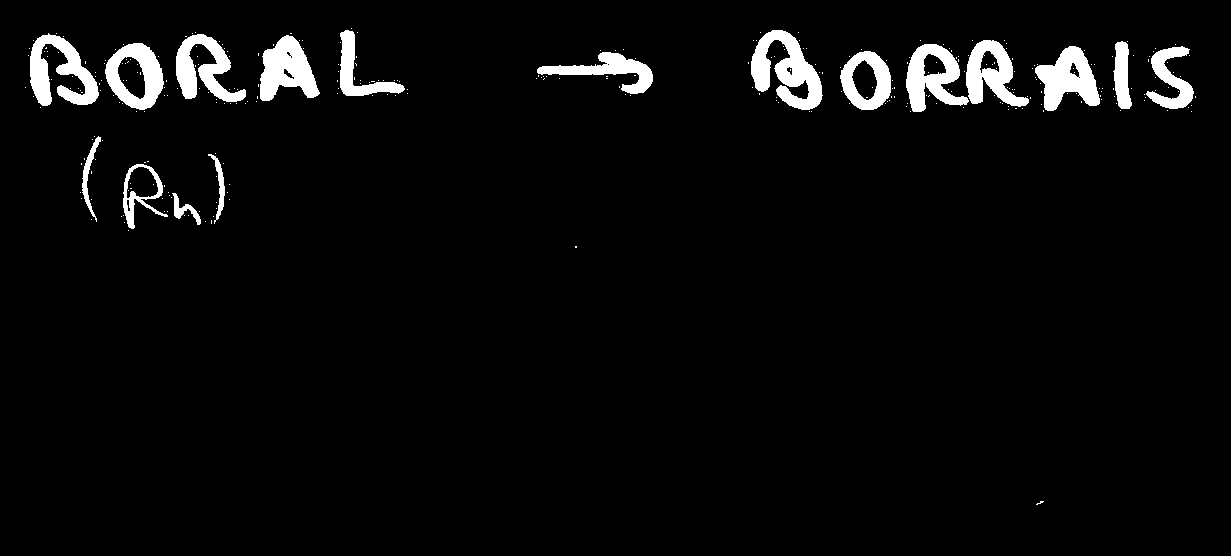 BORAL → BORRAIS
(Rn)